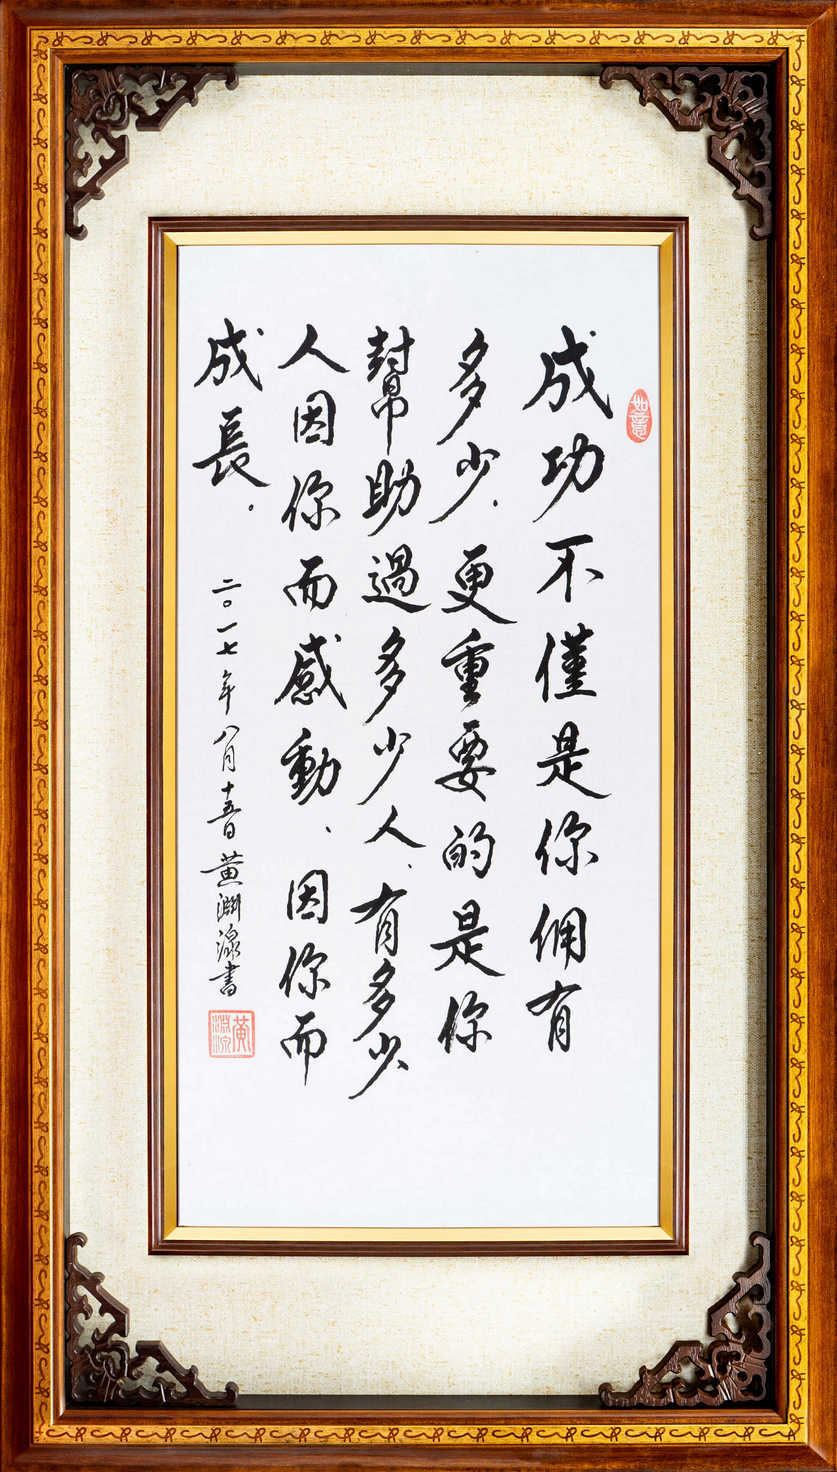 如意
成功不僅是你佣有
多少，更重要的是你
幫助過多少人，有多少
人因你而感動、因你而
成長。
二〇一七年八月十五日黄淵源書
黄淵源